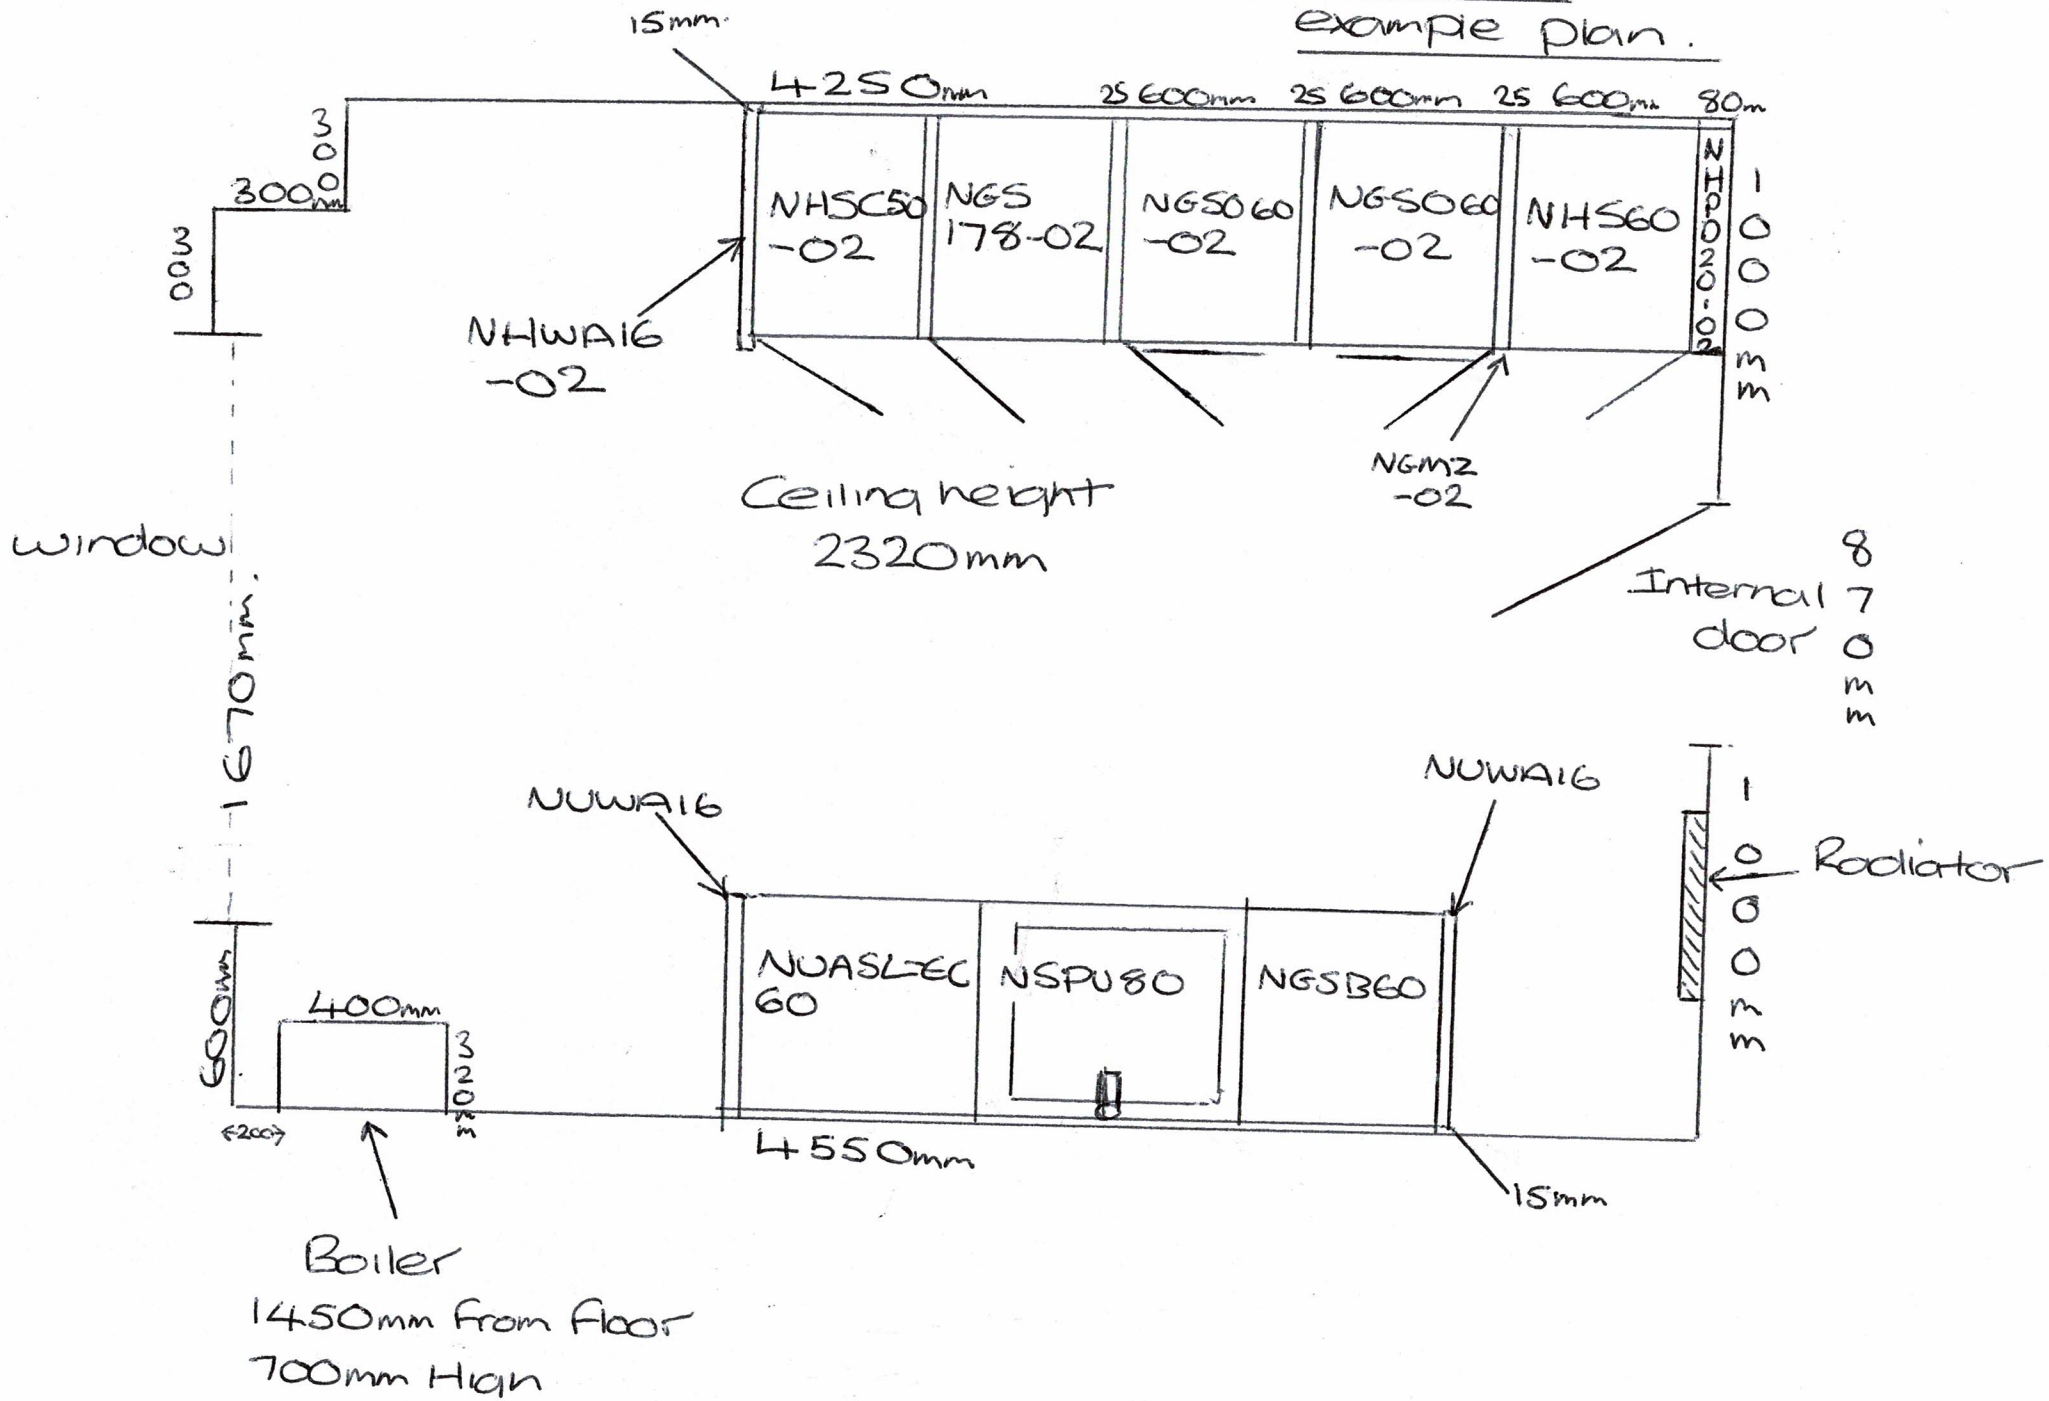 example plan.
15mm.
4250mm
25 600mm
25 600mm
25 600mm
80m
300
300mm
300
NHSC50
-02
NGS
178-02
NGSO60
-02
NGSO60
-02
NHS60
-02
NHPO20-02
1000mm
NHWA16
-02
NGMZ
-02
Ceiling height
2320mm
window
1670mm.
Internal
door
870mm
NUWA16
NUWA16
1000mm
Radiator
NUASLEC
60
NSPU80
NGSB60
600mm
400mm
320mm
<200>
4550mm
15mm
Boiler
1450mm from floor
700mm High